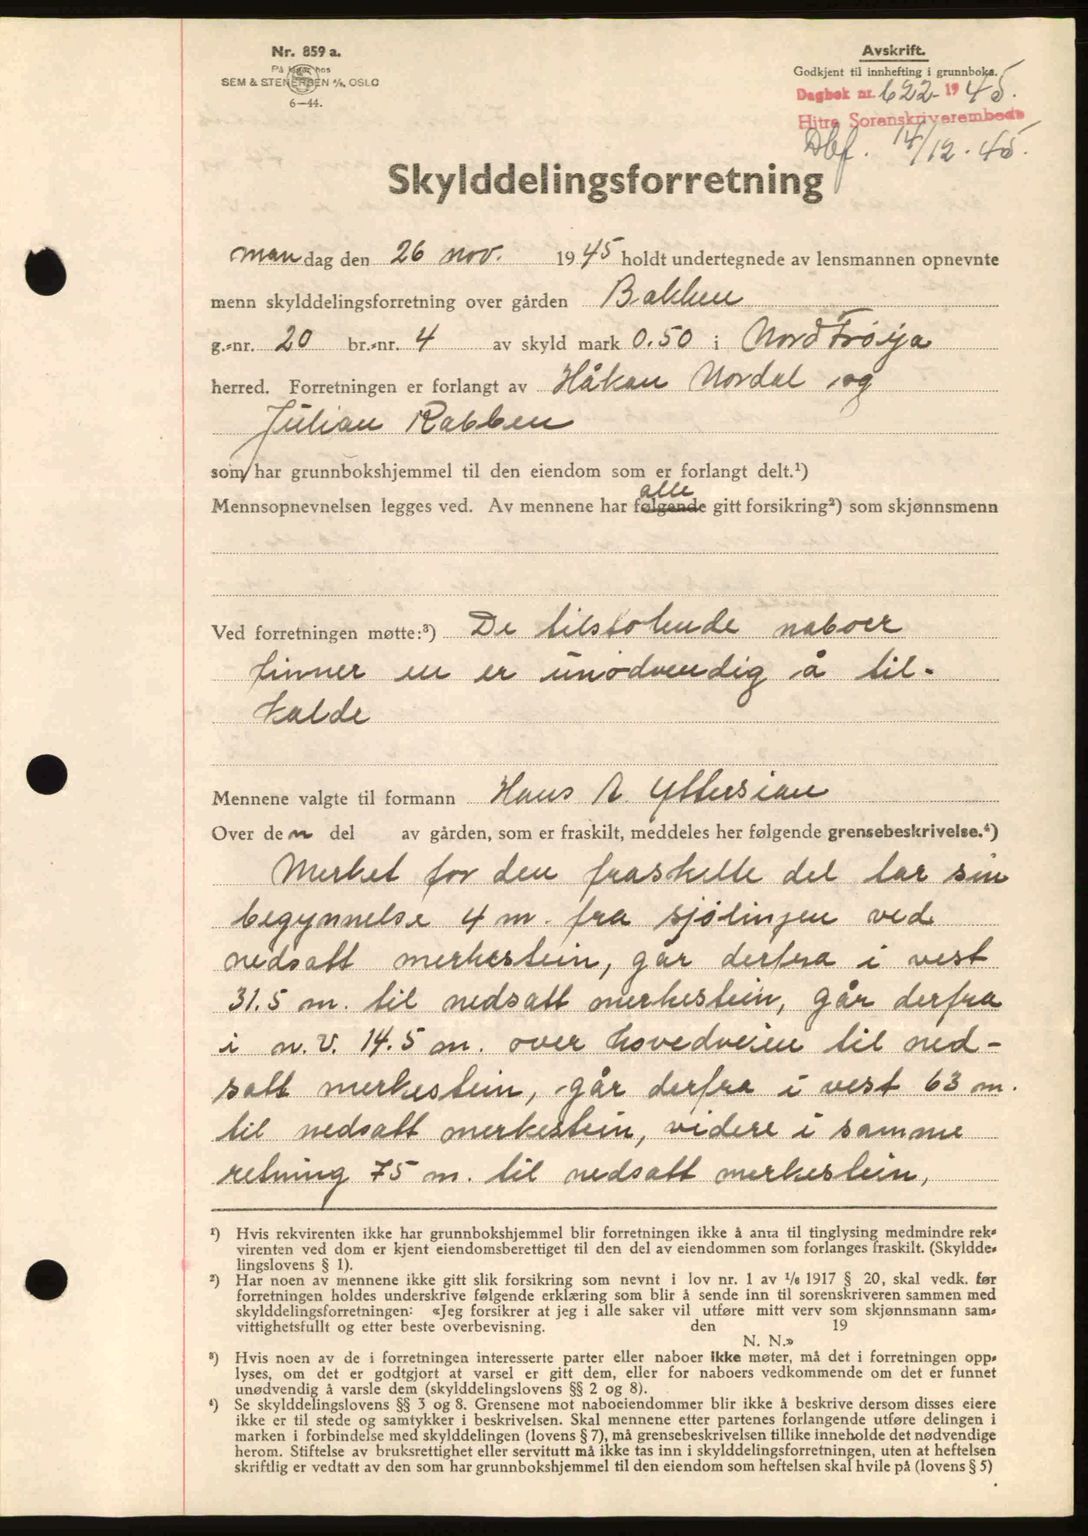 Nr. 859 a.
På lager hos
SEM & STENERSEN A/S, OSLO
6—44.
Avskrift.
Godkjent til innhefting i grunnboka.
Dagbok nr. 622 - 1945.
Hitra Sorenskriverembede
Dbf. 14/12. 45.
Skylddelingsforretning
mandag den 26 nov. 1945 holdt undertegnede av lensmannen opnevnte
menn skylddelingsforretning over gården Bakken
g.-nr. 20 br.-nr. 4 av skyld mark 0.50 i Nord Frøya
herred. Forretningen er forlangt av Håkon Nordal og
Julian Rabben
som har grunnbokshjemmel til den eiendom som er forlangt delt.¹)
alle
Mennsopnevnelsen legges ved. Av mennene har følgende gitt forsikring²) som skjønnsmenn
Ved forretningen møtte:³) De tilstøtende naboer
finner en er unødvendig å til-
kalde
Mennene valgte til formann Hans A. Yttersian
Over den del av gården, som er fraskilt, meddeles her følgende grensebeskrivelse.⁴)
Merket for den fraskilte del tar sin
begynnelse 4 m. fra sjølinjen ved
nedsatt merkestein, går derfra i vest
31.5 m. til nedsatt merkestein, går derfra
i n.v. 14.5 m. over hovedveien til ned-
satt merkestein, går derfra i vest 63 m.
til nedsatt merkestein, videre i samme
retning 75 m. til nedsatt merkestein,
¹) Hvis rekvirenten ikke har grunnbokshjemmel blir forretningen ikke å anta til tinglysing medmindre rek-
virenten ved dom er kjent eiendomsberettiget til den del av eiendommen som forlanges fraskilt. (Skyldde-
lingslovens § 1).
²) Har noen av mennene ikke gitt slik forsikring som nevnt i lov nr. 1 av 1/6 1917 § 20, skal vedk. før
forretningen holdes underskrive følgende erklæring som blir å sende inn til sorenskriveren sammen med
skylddelingsforretningen: «Jeg forsikrer at jeg i alle saker vil utføre mitt verv som skjønnsmann sam-
vittighetsfullt og etter beste overbevisning. den 19
N. N.»
³) Hvis noen av de i forretningen interesserte parter eller naboer ikke møter, må det i forretningen opp-
lyses, om det er godtgjort at varsel er gitt dem, eller for naboers vedkommende om det er funnet
unødvendig å varsle dem (skylddelingslovens §§ 2 og 8).
⁴) Se skylddelingslovens §§ 3 og 8. Grensene mot naboeiendommer blir ikke å beskrive dersom disses eiere
ikke er til stede og samtykker i beskrivelsen. Skal mennene etter partenes forlangende utføre delingen i
marken i forbindelse med skylddelingen (lovens § 7), må grensebeskrivelsen tillike inneholde det nødvendige
herom. Stiftelse av bruksrettighet eller servitutt må ikke tas inn i skylddelingsforretningen, uten at heftelsen
skriftlig er vedtatt av den som har grunnbokshjemmel til den eiendom som heftelsen skal hvile på (lovens § 5)